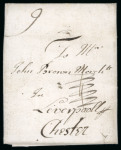 9
To Mr
John Browne Mercht
In
Liverpooll
Chester